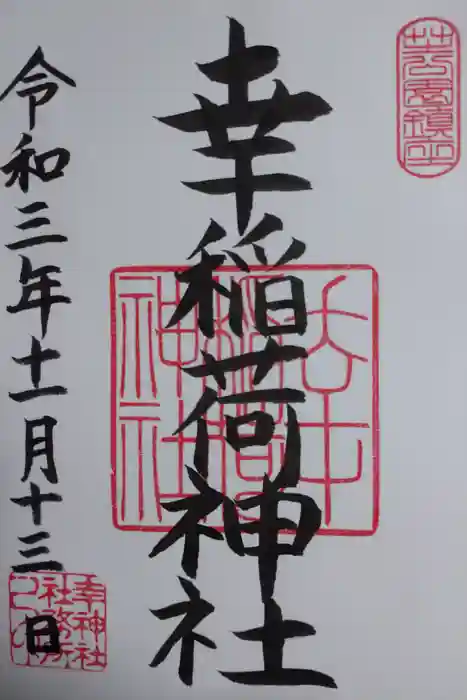 芝公園鎮座
幸稲荷神社
幸稲荷神社
令和三年十一月十三日
幸神社
社務所
之印